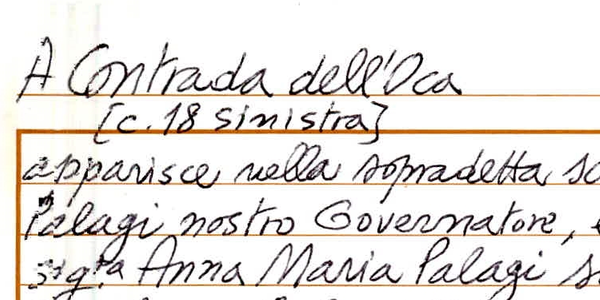 A Contrada dell'Oca
[c. 18 sinistra]
apparisce nella sopradetta
Palagi nostro Governatore,
sig.ra Anna Maria Palagi